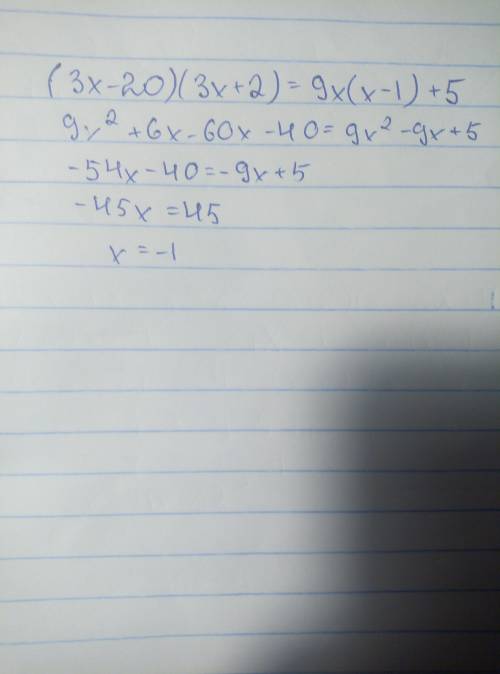 (3x-20)(3x+2)=9x(x-1)+5
9x²+6x-60x-40=9x²-9x+5
-54x-40=-9x+5
-45x=45
x=-1